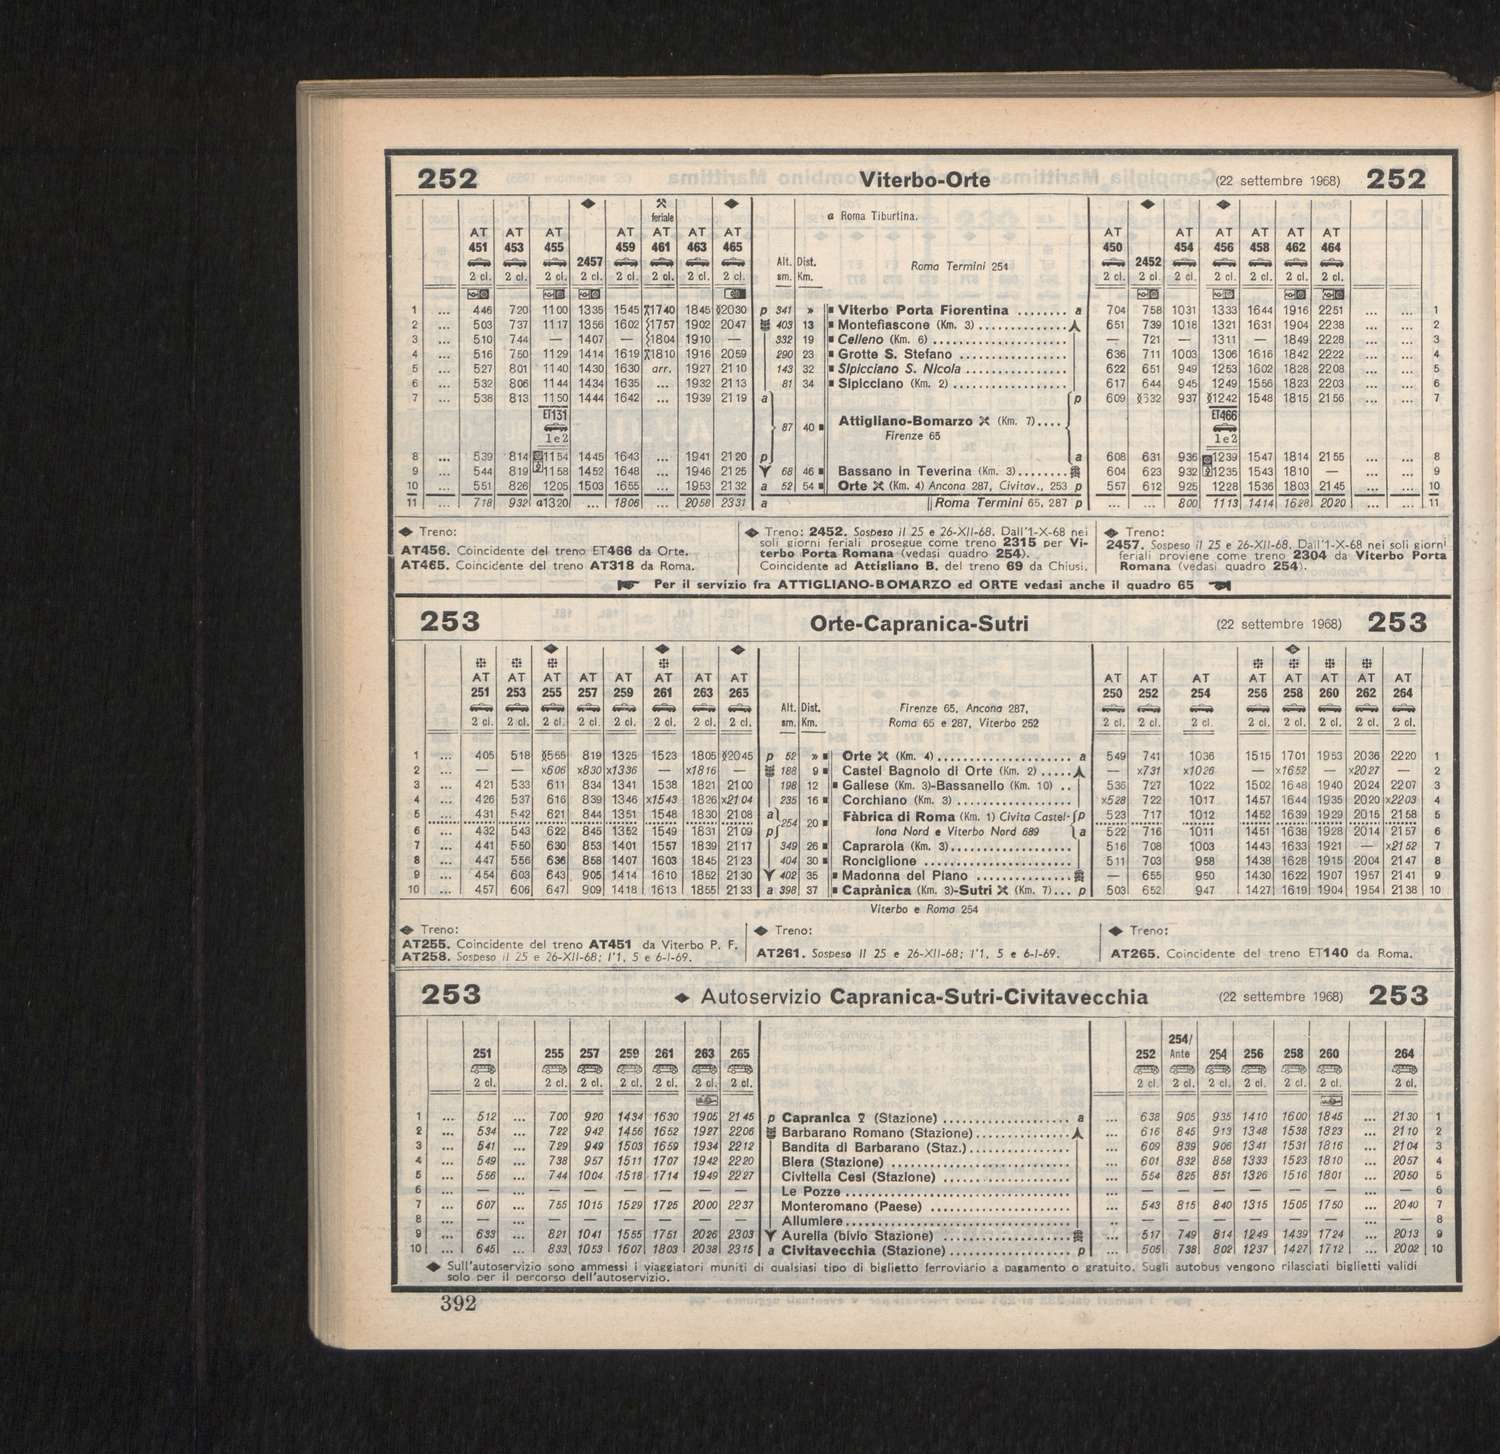 252 Viterbo-Orte (22 settembre 1968) 252
feriale
a Roma Tiburtina.
AT AT AT AT AT AT AT AT AT AT AT AT AT
451 453 455 2457 459 461 463 465 Alt. sm. Dist. Km. Roma Termini 254 450 2452 454 456 458 462 464
2 cl. 2 cl. 2 cl. 2 cl. 2 cl. 2 cl. 2 cl. 2 cl. 2 cl. 2 cl. 2 cl. 2 cl. 2 cl. 2 cl. 2 cl.
1 ... 446 720 1100 1335 1545 1740 1845 2030 p 341 » Viterbo Porta Fiorentina ........ a 704 758 1031 1333 1644 1916 2251 ... ... 1
2 ... 503 737 1117 1356 1602 1757 1902 2047 403 13 Montefiascone (Km. 3) .............. 651 739 1018 1321 1631 1904 2238 ... ... 2
3 ... 510 744 — 1407 — 1804 1910 — 332 19 Celleno (Km. 6) .................... — 721 — 1311 — 1849 2228 ... ... 3
4 ... 516 750 1129 1414 1619 1810 1916 2059 290 23 Grotte S. Stefano ................ 636 711 1003 1306 1616 1842 2222 ... ... 4
5 ... 527 801 1140 1430 1630 arr. 1927 2110 143 32 Sipicciano S. Nicola ............... 622 651 949 1253 1602 1828 2208 ... ... 5
6 ... 532 806 1144 1434 1635 ... 1932 2113 81 34 Sipicciano (Km. 2) .................. 617 644 945 1249 1556 1823 2203 ... ... 6
7 ... 538 813 1150 1444 1642 ... 1939 2119 a p 609 §632 937 §1242 1548 1815 2156 ... ... 7
ET131 87 40 Attigliano-Bomarzo (Km. 7).... ET466
Firenze 65
1 e 2 1 e 2
8 ... 539 814 1154 1445 1643 ... 1941 2120 p a 608 631 936 1239 1547 1814 2155 ... ... 8
9 ... 544 819 1158 1452 1648 ... 1946 2125 68 46 Bassano in Teverina (Km. 3)........ 604 623 932 1235 1543 1810 — ... ... 9
10 ... 551 826 1205 1503 1655 ... 1953 2132 a 52 54 Orte (Km. 4) Ancona 287, Civitav., 253 p 557 612 925 1228 1536 1803 2145 ... ... 10
11 ... 718 932 a1320 ... 1806 ... 2058 2331 a Roma Termini 65, 287 p ... ... 800 1113 1414 1628 2020 ... ... 11
◆ Treno:
AT456. Coincidente del treno ET466 da Orte.
AT465. Coincidente del treno AT318 da Roma.
◆ Treno: 2452. Sospeso il 25 e 26-XII-68. Dall'1-X-68 nei
soli giorni feriali prosegue come treno 2315 per Vi-
terbo Porta Romana (vedasi quadro 254).
Coincidente ad Attigliano B. del treno 69 da Chiusi.
◆ Treno:
2457. Sospeso il 25 e 26-XII-68. Dall'1-X-68 nei soli giorni
feriali proviene come treno 2304 da Viterbo Porta
Romana (vedasi quadro 254).
Per il servizio fra ATTIGLIANO-BOMARZO ed ORTE vedasi anche il quadro 65
253 Orte-Capranica-Sutri (22 settembre 1968) 253
AT AT AT AT AT AT AT AT AT AT AT AT AT AT AT AT
251 253 255 257 259 261 263 265 Alt. sm. Dist. Km. Firenze 65, Ancona 287, 250 252 254 256 258 260 262 264
2 cl. 2 cl. 2 cl. 2 cl. 2 cl. 2 cl. 2 cl. 2 cl. Roma 65 e 287, Viterbo 252 2 cl. 2 cl. 2 cl. 2 cl. 2 cl. 2 cl. 2 cl. 2 cl.
1 ... 405 518 §555 819 1325 1523 1805 §2045 p 52 » Orte (Km. 4)..................... a 549 741 1036 1515 1701 1953 2036 2220 1
2 ... — — x606 x830 x1336 — x1816 — 188 9 Castel Bagnolo di Orte (Km. 2) ..... — x731 x1026 — x1652 — x2027 — 2
3 ... 421 533 611 834 1341 1538 1821 2100 198 12 Gallese (Km. 3)-Bassanello (Km. 10) .. 535 727 1022 1502 1648 1940 2024 2207 3
4 ... 426 537 616 839 1346 x1543 1826 x2104 235 16 Corchiano (Km. 3) .................. x528 722 1017 1457 1644 1935 2020 x2203 4
5 ... 431 542 621 844 1351 1548 1830 2108 a 254 20 Fàbrica di Roma (Km. 1) Civita Castel- p 523 717 1012 1452 1639 1929 2015 2158 5
6 ... 432 543 622 845 1352 1549 1831 2109 p lona Nord e Viterbo Nord 689 a 522 716 1011 1451 1638 1928 2014 2157 6
7 ... 441 550 630 853 1401 1557 1839 2117 349 26 Caprarola (Km. 3).................. 516 708 1003 1443 1633 1921 — x2152 7
8 ... 447 556 636 858 1407 1603 1845 2123 404 30 Ronciglione ....................... 511 703 958 1438 1628 1915 2004 2147 8
9 ... 454 603 643 905 1414 1610 1852 2130 402 35 Madonna del Piano .............. — 655 950 1430 1622 1907 1957 2141 9
10 ... 457 606 647 909 1418 1613 1855 2133 a 398 37 Caprànica (Km. 3)-Sutri (Km. 7)... p 503 652 947 1427 1619 1904 1954 2138 10
Viterbo e Roma 254
◆ Treno:
AT255. Coincidente del treno AT451 da Viterbo P. F.
AT258. Sospeso il 25 e 26-XII-68; l'1, 5 e 6-I-69.
◆ Treno:
AT261. Sospeso il 25 e 26-XII-68; l'1, 5 e 6-I-69.
◆ Treno:
AT265. Coincidente del treno ET140 da Roma.
253 ◆ Autoservizio Capranica-Sutri-Civitavecchia (22 settembre 1968) 253
251 255 257 259 261 263 265 252 254/Ante 254 256 258 260 264
2 cl. 2 cl. 2 cl. 2 cl. 2 cl. 2 cl. 2 cl. 2 cl. 2 cl. 2 cl. 2 cl. 2 cl. 2 cl. 2 cl.
1 ... 512 ... 700 920 1434 1630 1905 2145 p Capranica (Stazione) ................... a ... 638 905 935 1410 1600 1845 ... 2130 1
2 ... 534 ... 722 942 1456 1652 1927 2206 Barbarano Romano (Stazione).............. ... 616 845 913 1348 1538 1823 ... 2110 2
3 ... 541 ... 729 949 1503 1659 1934 2212 Bandita di Barbarano (Staz.)............... ... 609 839 906 1341 1531 1816 ... 2104 3
4 ... 549 ... 738 957 1511 1707 1942 2220 Blera (Stazione) ........................... ... 601 832 858 1333 1523 1810 ... 2057 4
5 ... 556 ... 744 1004 1518 1714 1949 2227 Civitella Cesi (Stazione) ................... ... 554 825 851 1326 1516 1801 ... 2050 5
6 ... — ... — — — — — — Le Pozze .................................. ... — — — — — — ... — 6
7 ... 607 ... 755 1015 1529 1725 2000 2237 Monteromano (Paese) ..................... ... 543 815 840 1315 1505 1750 ... 2040 7
8 ... — ... — — — — — — Allumiere.................................. .. — — — — — — ... — 8
9 ... 633 ... 821 1041 1555 1751 2026 2303 Aurelia (bivio Stazione) .................. ... 517 749 814 1249 1439 1724 ... 2013 9
10 ... 645 ... 833 1053 1607 1803 2038 2315 a Civitavecchia (Stazione).................. p ... 505 738 802 1237 1427 1712 ... 2002 10
◆ Sull'autoservizio sono ammessi i viaggiatori muniti di qualsiasi tipo di biglietto ferroviario a pagamento o gratuito. Sugli autobus vengono rilasciati biglietti validi
solo per il percorso dell'autoservizio.
392